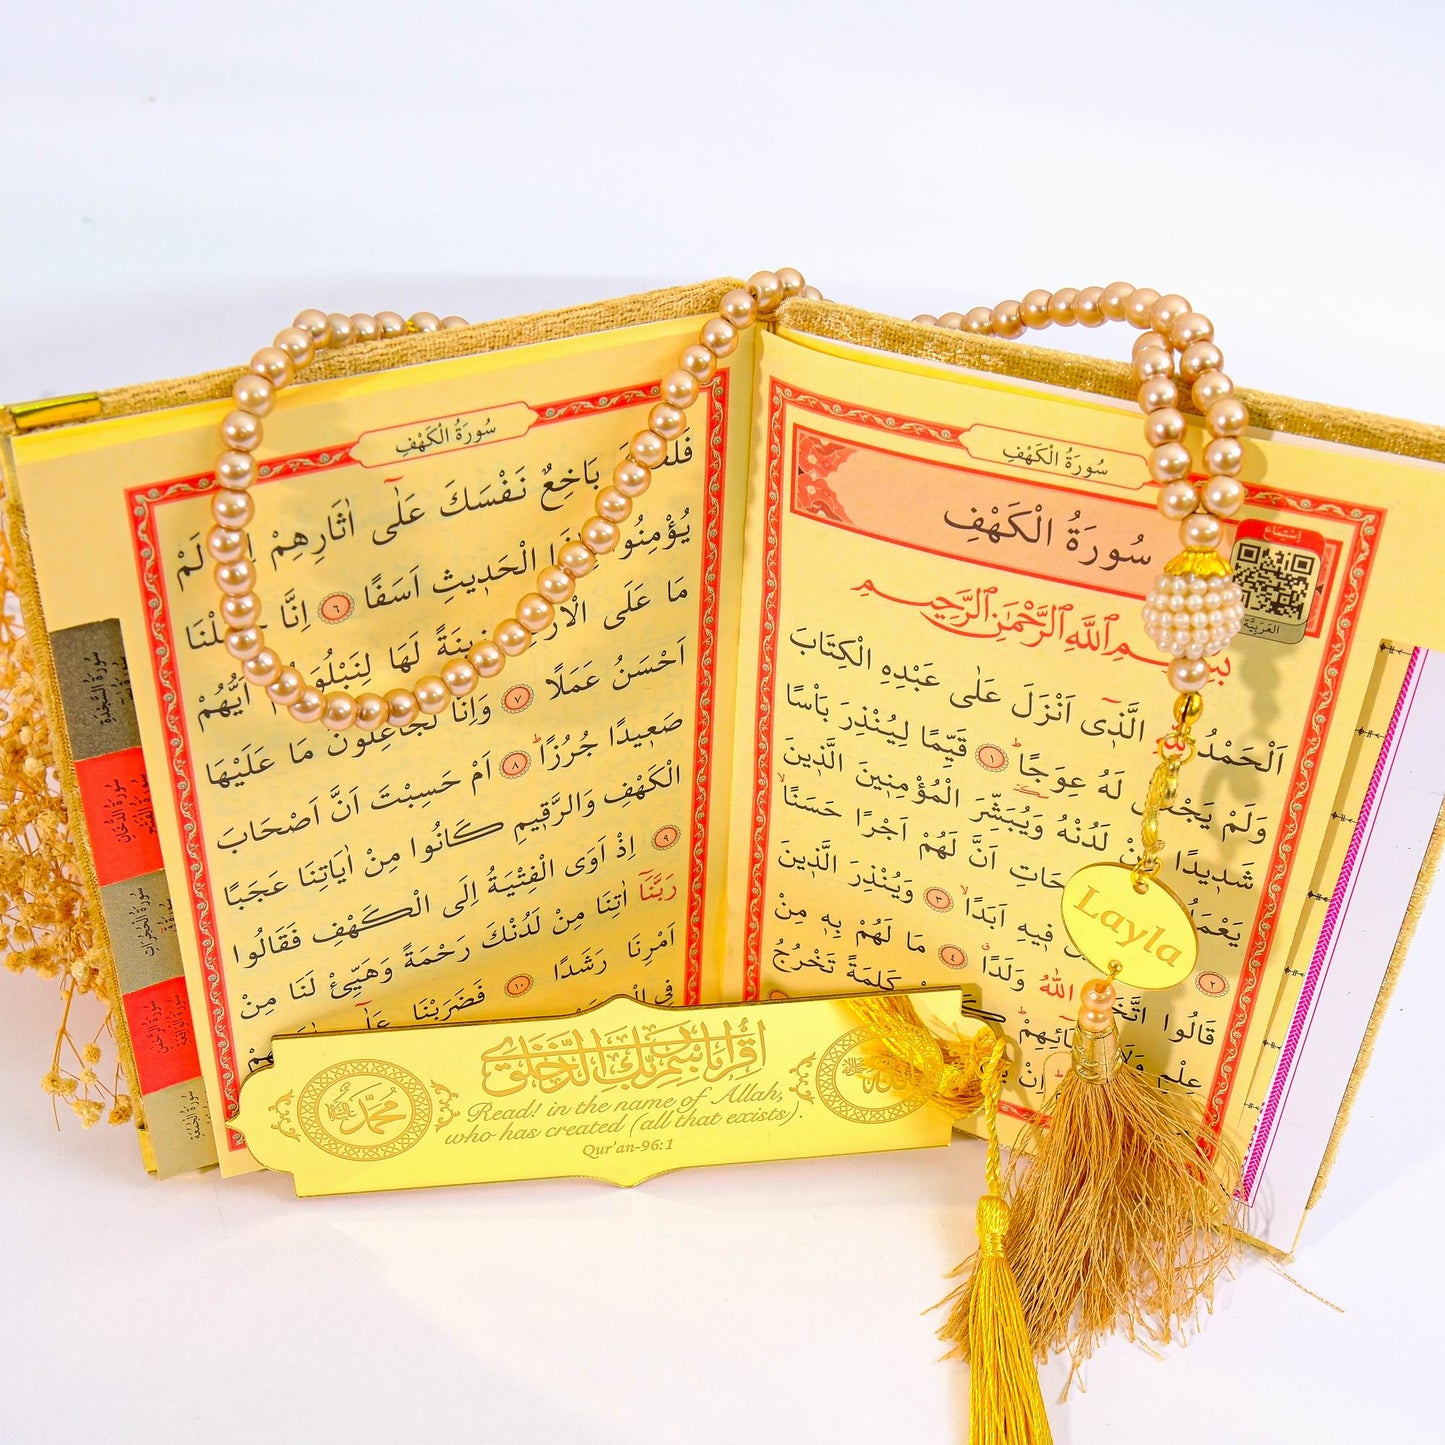 سُورَةُ الْكَهْفِ
سُورَةُ الْكَهْفِ
إستماع
العَرَبِيَّة
بِسْمِ اللّٰهِ الرَّحْمٰنِ الرَّحِيمِ
اَلْحَمْدُ الَّذ۪ٓي اَنْزَلَ عَلٰى عَبْدِهِ الْكِتَابَ
وَلَمْ يَجْعَلْ لَهُ عِوَجًاۜ ١ قَيِّمًا لِيُنْذِرَ بَاْسًا
شَد۪يدًا مِنْ لَدُنْهُ وَيُبَشِّرَ الْمُؤْمِن۪ينَ الَّذ۪ينَ
اَنَّ لَهُمْ اَجْرًا حَسَنًاۙ
٢ ف۪يهِ اَبَدًاۙ ٣ وَيُنْذِرَ الَّذ۪ينَ
قَالُوا اللّٰهُ وَلَدًاۗ ٤ مَا لَهُمْ بِه۪ مِنْ
عِلْمٍ كَلِمَةً تَخْرُجُ
اِنْ
سُورَةُ الْكَهْفِ
بَاخِعٌ نَفْسَكَ عَلٰٓى اٰثَارِهِمْ لَمْ
يُؤْمِنُوا الْحَد۪يثِ اَسَفًا ٦ اِنَّا
مَا عَلَى الْاَرْضِ ز۪ينَةً لَهَا لِنَبْلُوَهُمْ اَيُّهُمْ
اَحْسَنُ عَمَلًا ٧ وَاِنَّا لَجَاعِلُونَ مَا عَلَيْهَا
صَع۪يدًا جُرُزًاۜ ٨ اَمْ حَسِبْتَ اَنَّ اَصْحَابَ
الْكَهْفِ وَالرَّق۪يمِ كَانُوا مِنْ اٰيَاتِنَا عَجَبًا
٩ اِذْ اَوَى الْفِتْيَةُ اِلَى الْكَهْفِ فَقَالُوا
رَبَّنَٓا اٰتِنَا مِنْ لَدُنْكَ رَحْمَةً وَهَيِّئْ لَنَا مِنْ
اَمْرِنَا رَشَدًا ١٠ فَضَرَبْنَا عَلٰٓى
سورة السجدة
سورة الدخان
سورة الفتح
سورة الحجرات
سورة الرحمن
سورة الواقعة
سورة الجمعة
الله
Layla
اقرأ باسم ربك الذي خلق
محمد
Read! in the name of Allah,
who has created (all that exists).
Qur'an-96:1